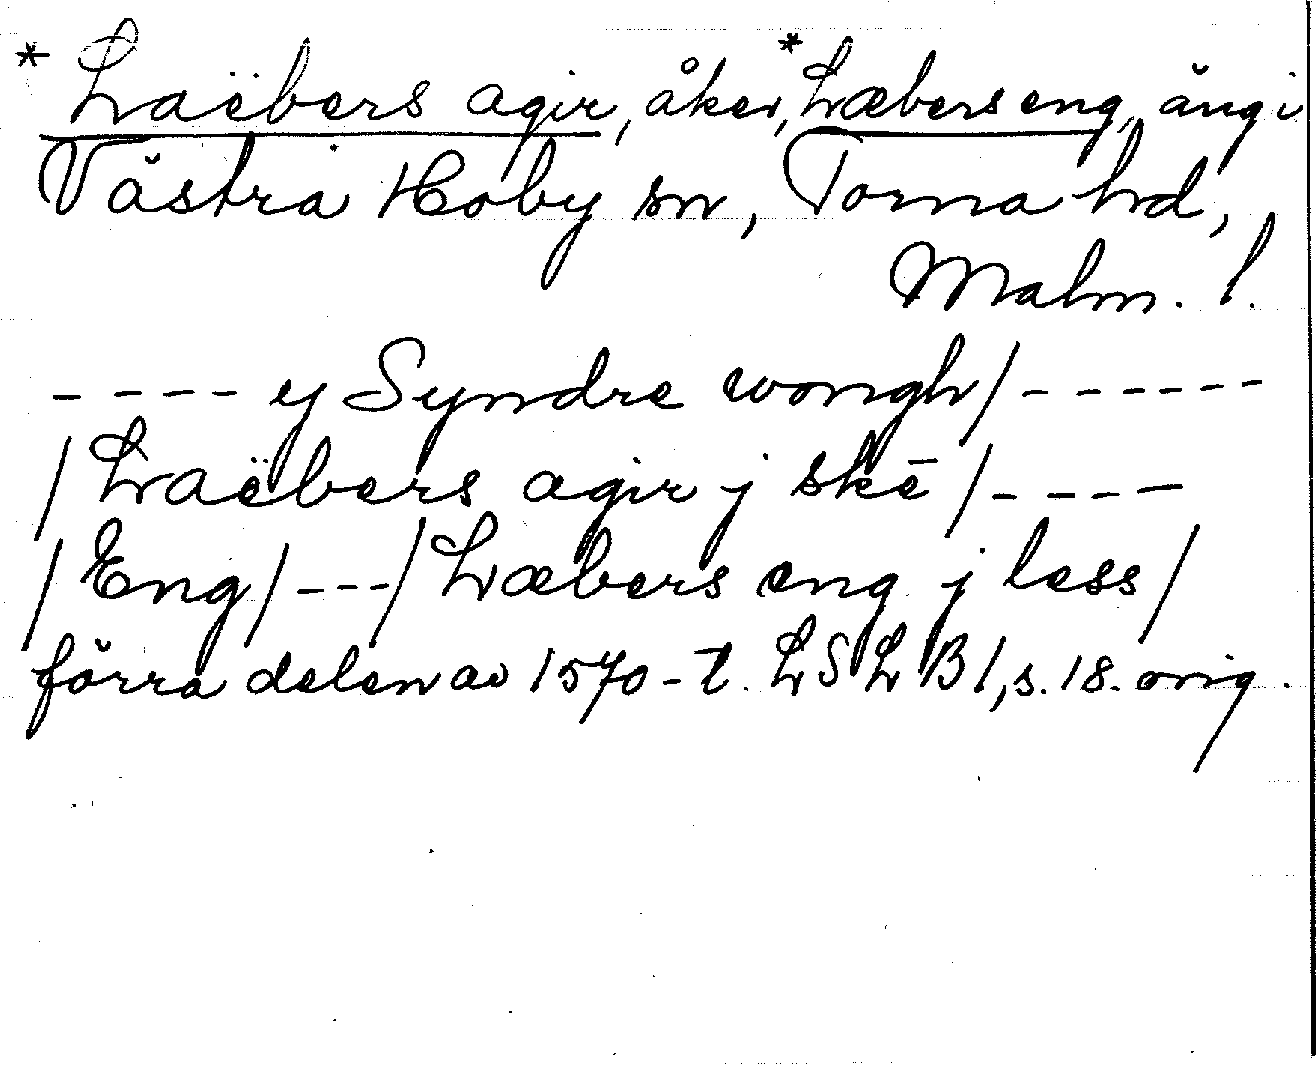 * Laëbers agir, åker, * Læbers eng, äng i
Västra Hoby sn, Torna hd,
Malm. l.
- - - - y Syndre wongh/ - - - - - -
/Laëbers agir j skē/ - - - -
/Eng/ - - - /Læbers eng j less/
förra delen av 1570-t. LSLB1, s. 18. orig.